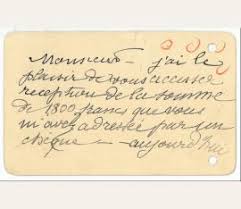 Monsieur - j'ai le
plaisir de vous accuser
reception de la somme
de 1800 francs que vous
m'avez adressée par un
chèque - aujourd'hui